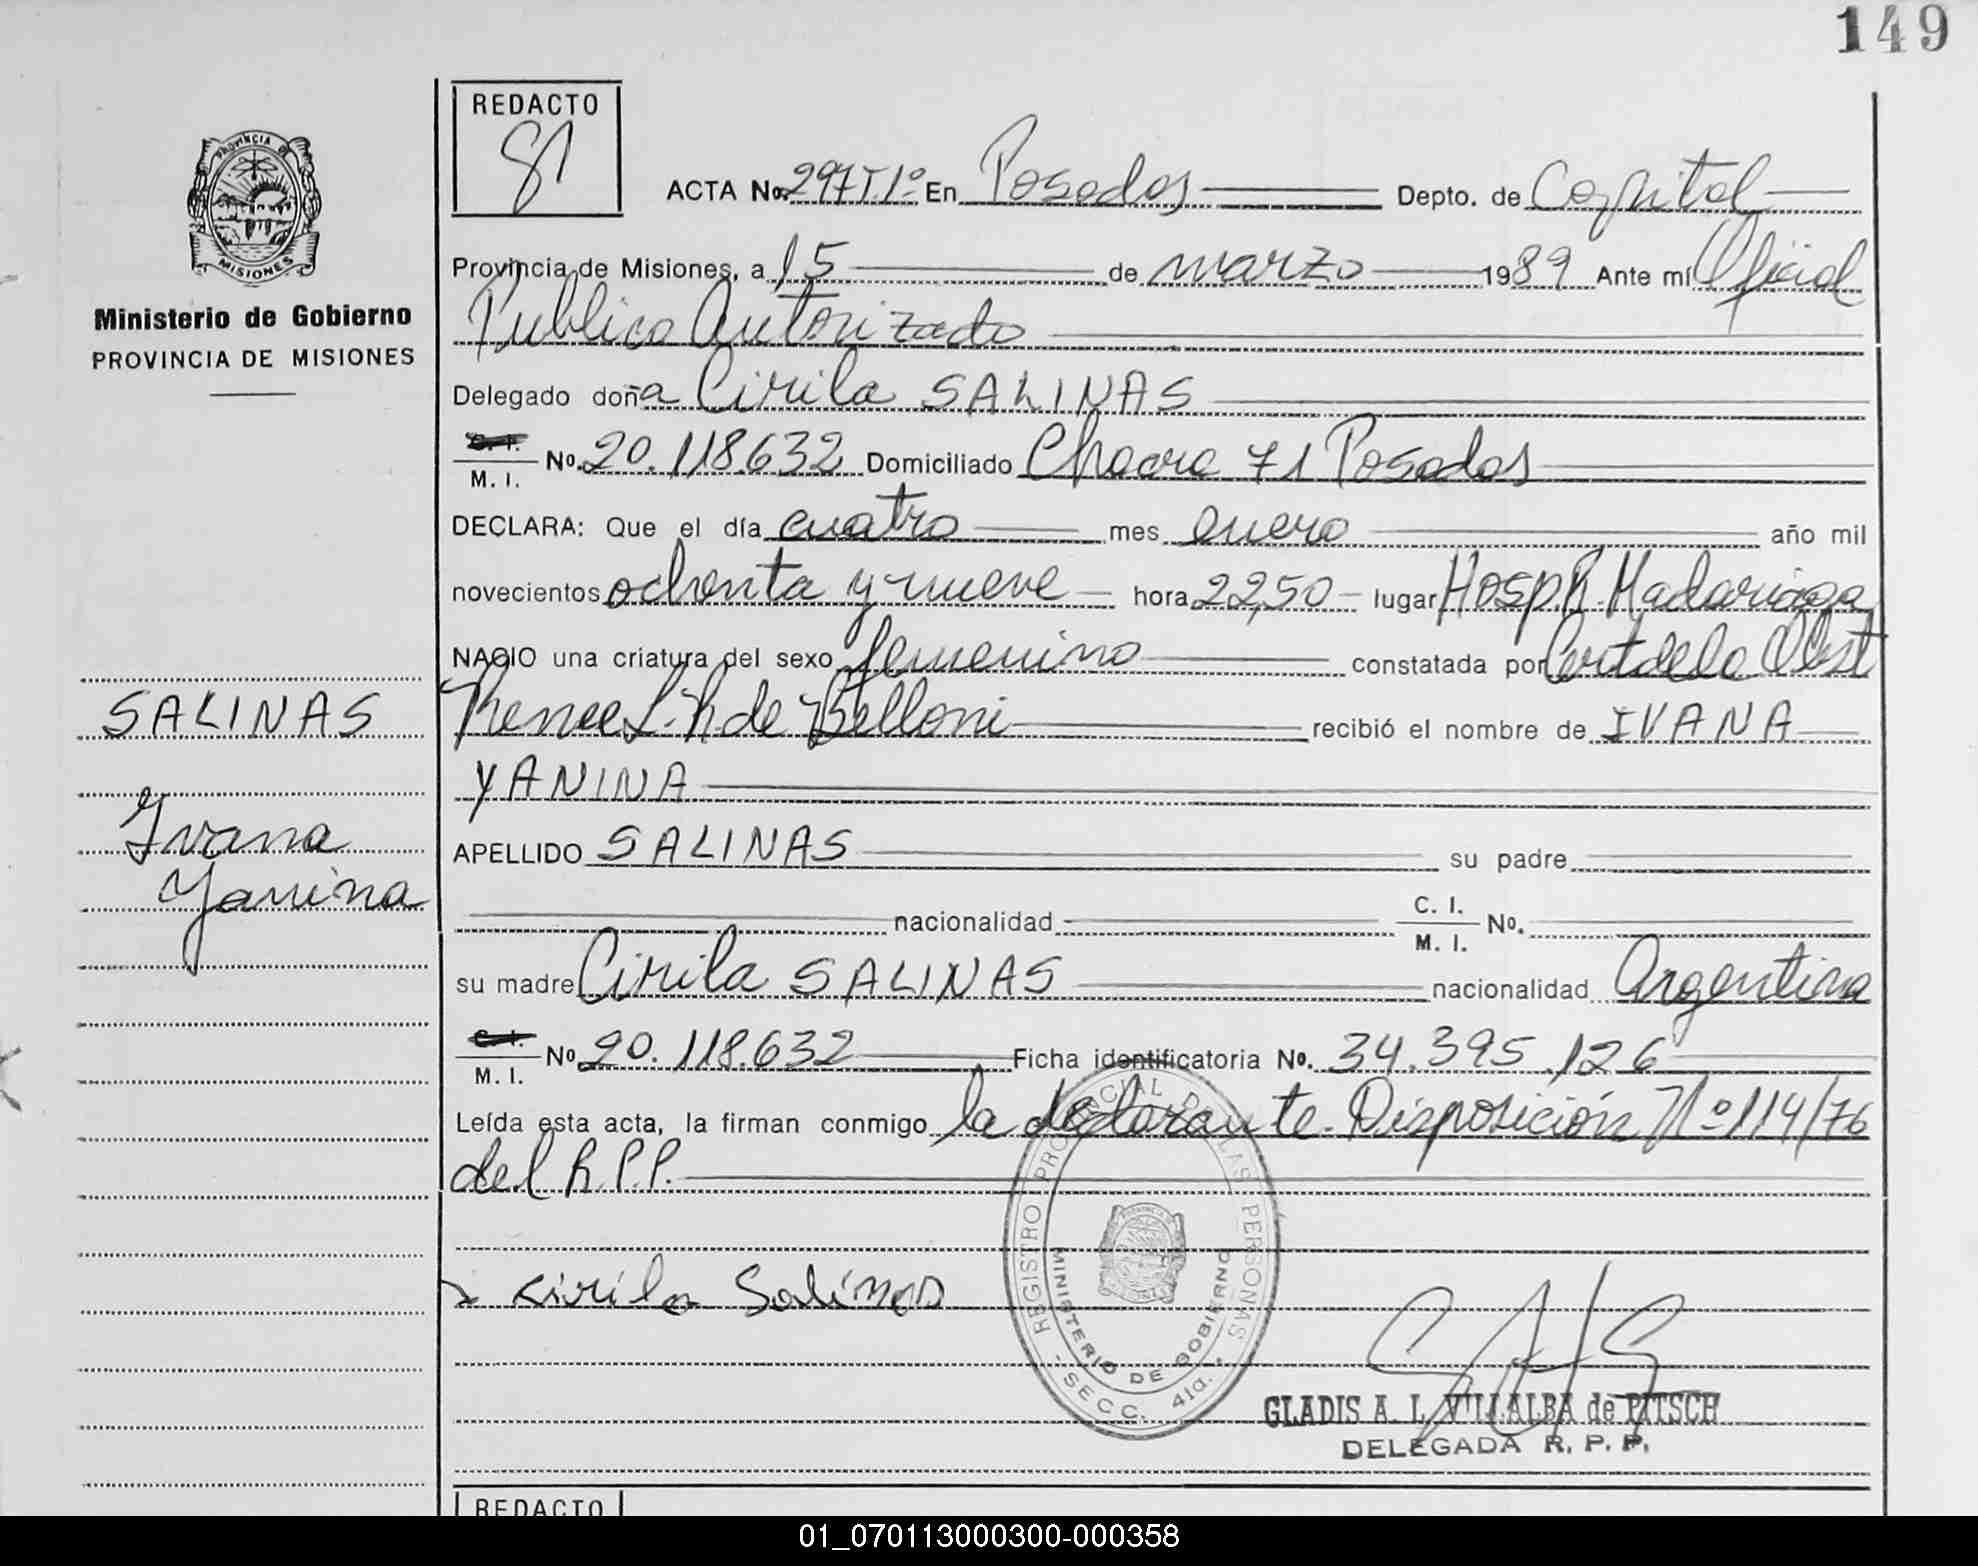 149
REDACTO
PROVINCIA DE
MISIONES
Ministerio de Gobierno
PROVINCIA DE MISIONES
ACTA No. 297T.1º En Posadas Depto. de Capital
Provincia de Misiones, a 15 de marzo 1989 Ante mí Oficial
Publico Autorizado
Delegado doña Cirila SALINAS
C. I.
M. I. No. 20.118.632 Domiciliado Chacra 71 Posadas
DECLARA: Que el día cuatro mes enero año mil
novecientos ochenta y nueve hora 22,50 lugar Hosp. R. Madariaga
NACIO una criatura del sexo femenino constatada por Cert de la Obst
Renee L. R de Belloni recibió el nombre de IVANA
YANINA
APELLIDO SALINAS su padre
nacionalidad C. I.
M. I. No.
su madre Cirila SALINAS nacionalidad Argentina
C. I.
M. I. No 20.118.632 Ficha identificatoria No. 34.395.126
Leída esta acta, la firman conmigo la declarante. Disposición Nº 114/76
del R.P.P.
SALINAS
Ivana
Yanina
x Cirila Salinas
REGISTRO PROVINCIAL DE LAS PERSONAS
MINISTERIO DE GOBIERNO
- SECC. 41a. -
GLADIS A. L. VILLALBA de PITSCH
DELEGADA R. P. P.
REDACTO
01_070113000300-000358